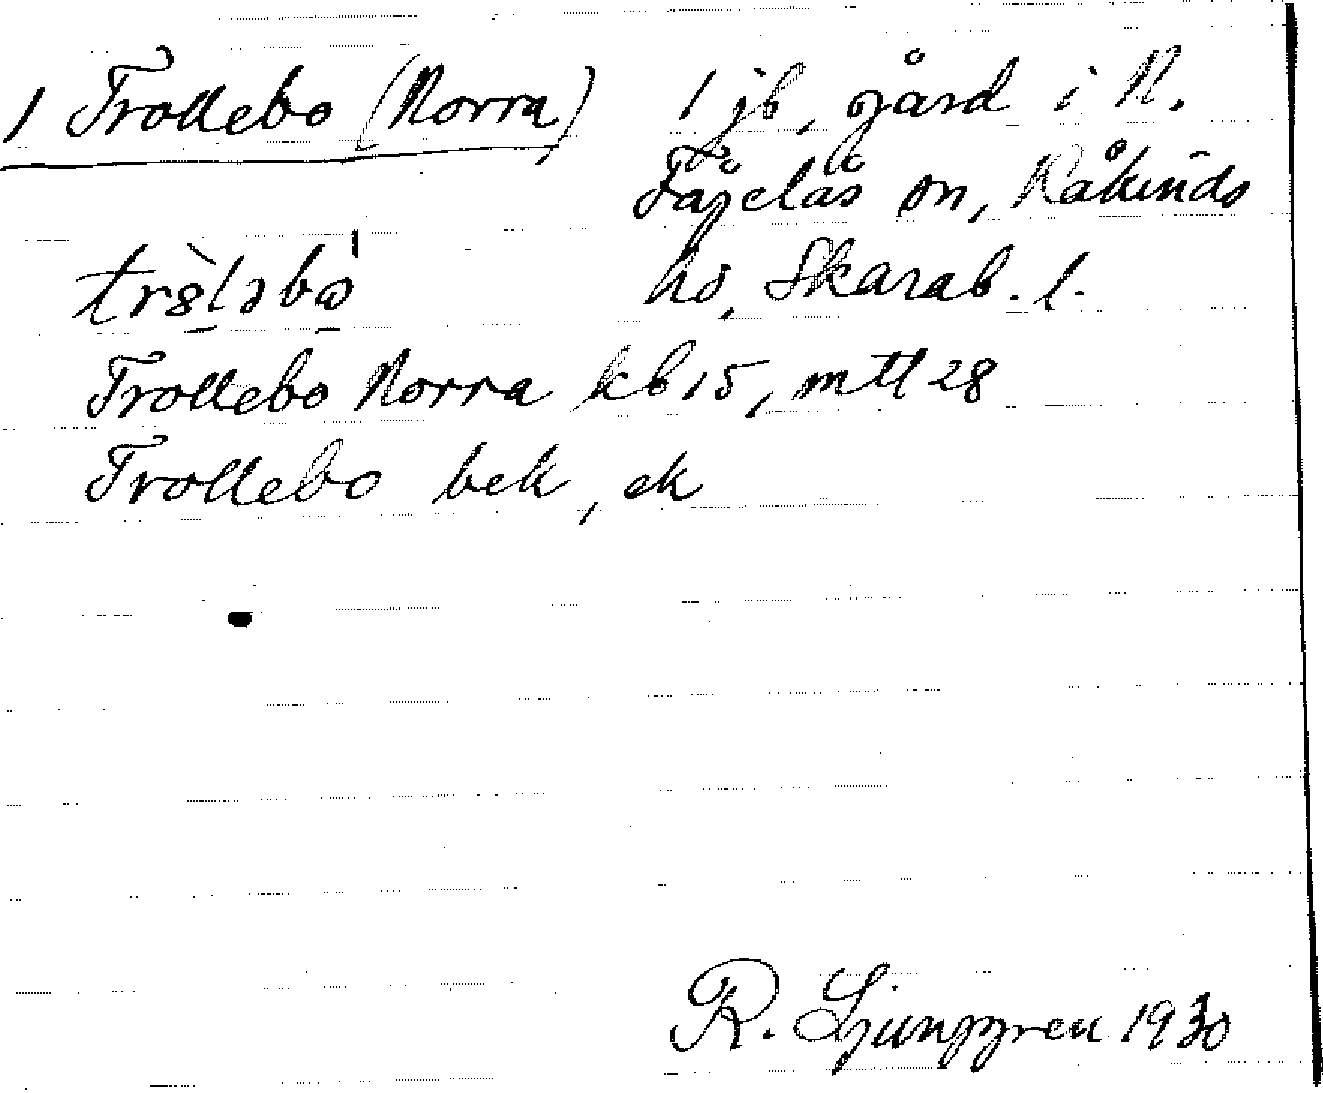 1 Trollebo (Norra) 1 jb, gård i N.
Fågelås sn, Kåkinds
hd, Skarab. l.
Trollebo Norra kb 15, mtl 28
Trollebo bek, ek
R. Ljunggren 1930